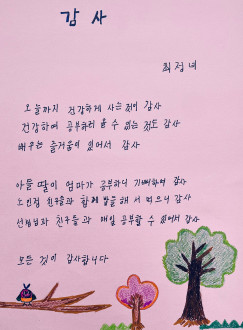 감사
최정녀
오늘까지 건강하게 사는것이 감사
건강하여 공부하러 올 수 있는 것도 감사
배우는 즐거움이 있어서 감사
아들 딸이 엄마가 공부하니 기뻐하여 감사
노인정 친구들과 함께 밥을 해서 먹으니 감사
선생님과 친구들과 매일 공부할 수 있어서 감사
모든 것이 감사합니다